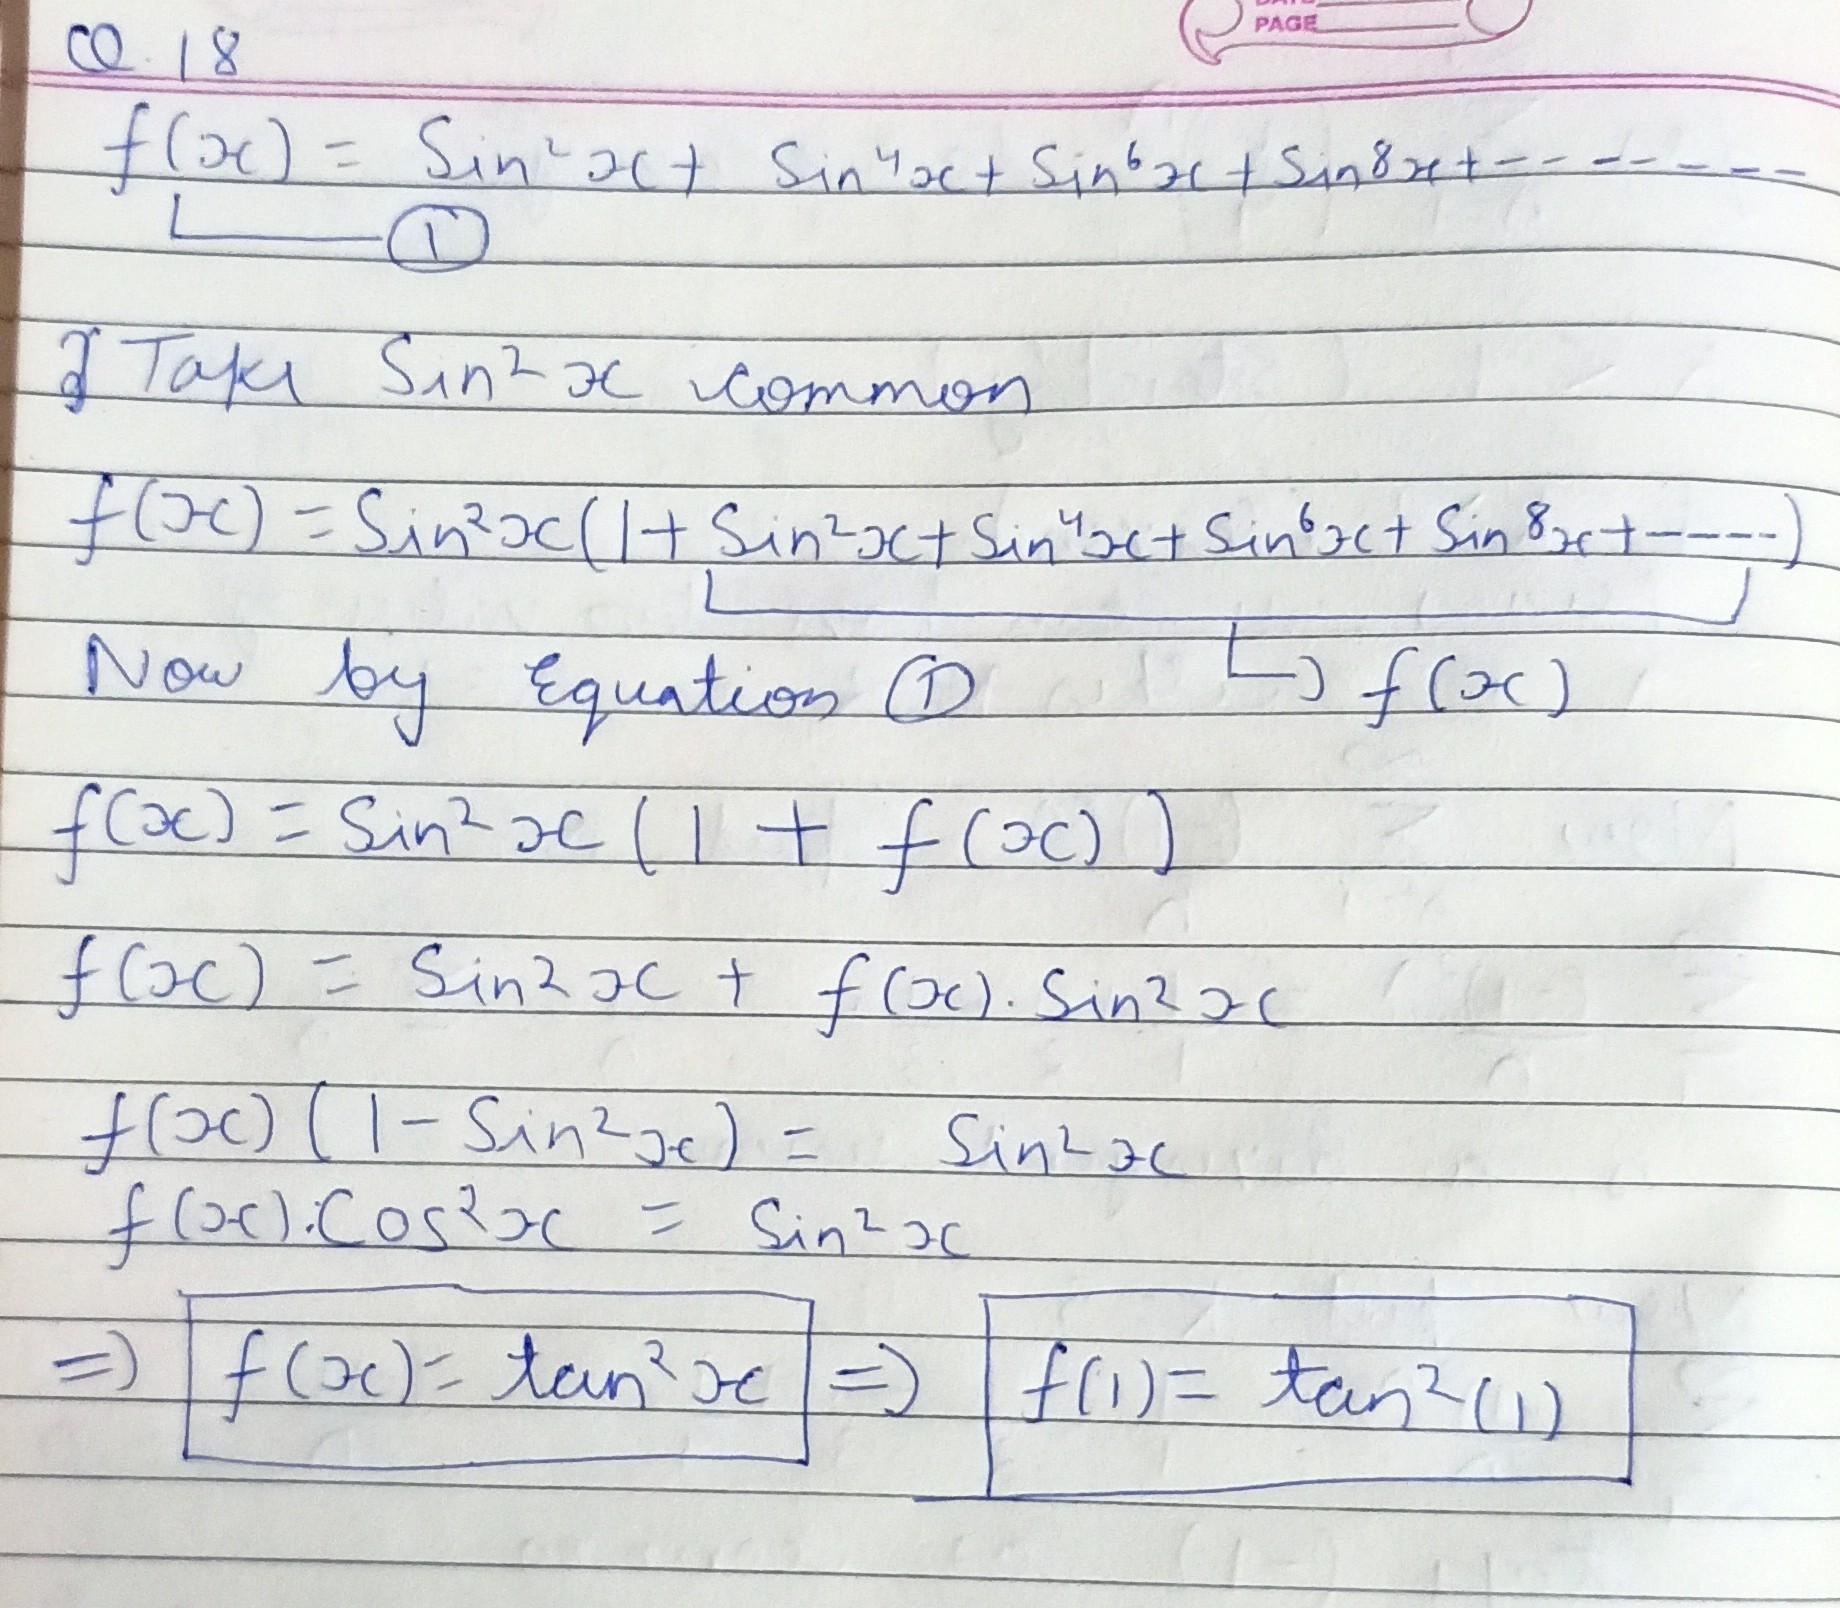 DATE
PAGE
Q. 18
f(x) = Sin²x + Sin⁴x + Sin⁶x + Sin⁸x + - - - - - - -
①
Take Sin²x common
f(x) = Sin²x (1 + Sin²x + Sin⁴x + Sin⁶x + Sin⁸x + -----)
Now by Equation ① ↳ f(x)
f(x) = Sin²x (1 + f(x))
f(x) = Sin²x + f(x). Sin²x
f(x) (1 - Sin²x) = Sin²x
f(x).Cos²x = Sin²x
=> f(x) = tan²x => f(1) = tan²(1)